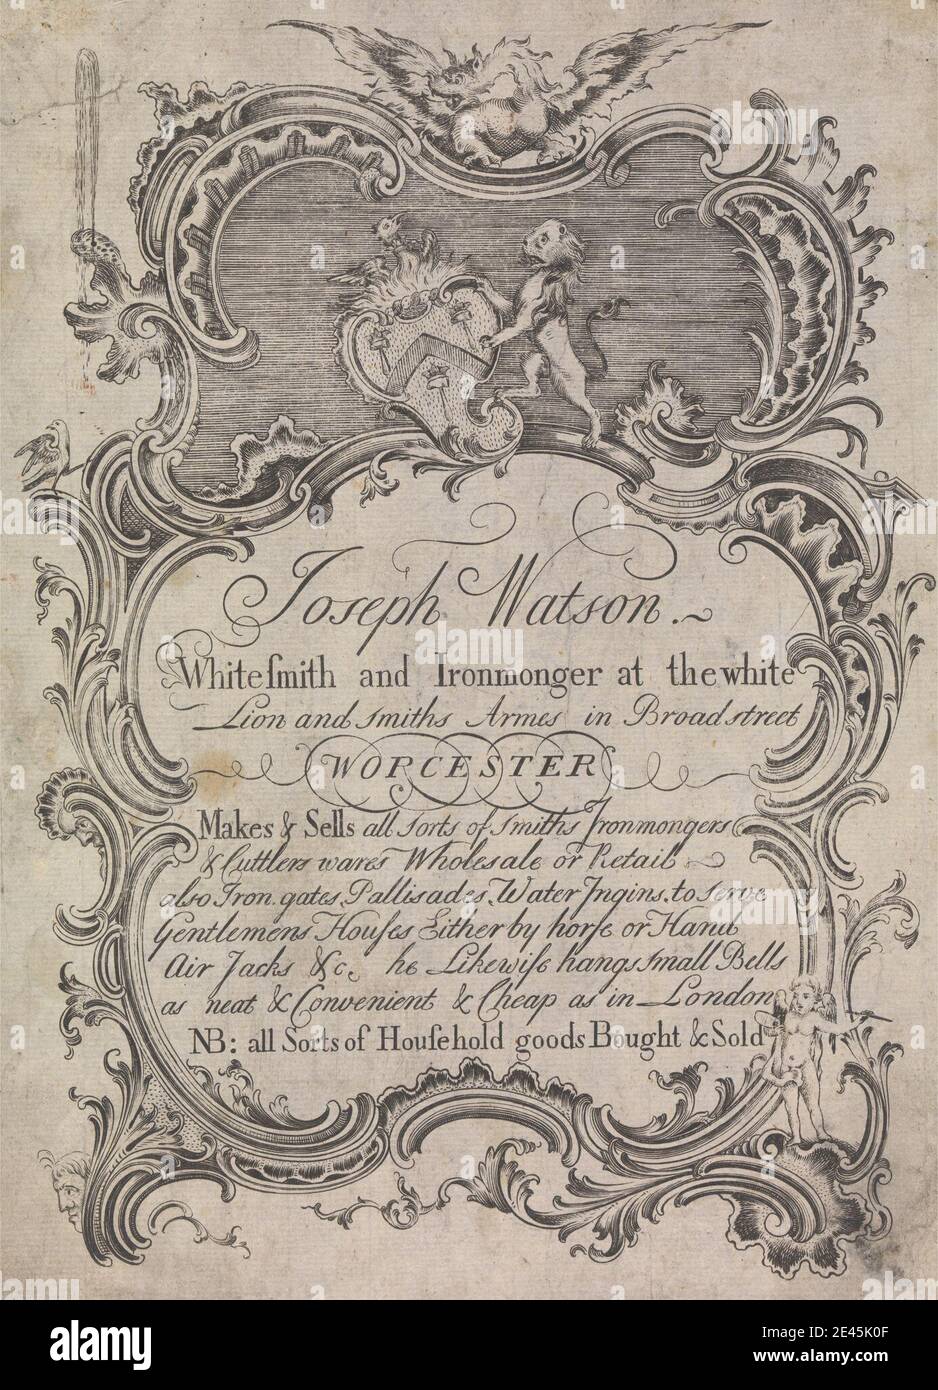 Joseph Watson.
Whiteſmith and Ironmonger at the white
Lion and ſmiths Armes in Broadstreet
WORCESTER
Makes & Sells all sorts of smiths Ironmongers
& Cuttlers wares Wholesale or Retail
also Iron gates, Pallisades, Water Ingins, to serve
Gentlemens Houſes Either by horſe or Hand
Air Jacks &c, he Likewiſe hangs small Bells
as neat & Convenient & Cheap as in London
NB: all Sorts of Houſehold goods Bought & Sold
alamy
Image ID: 2E45K0F
www.alamy.com